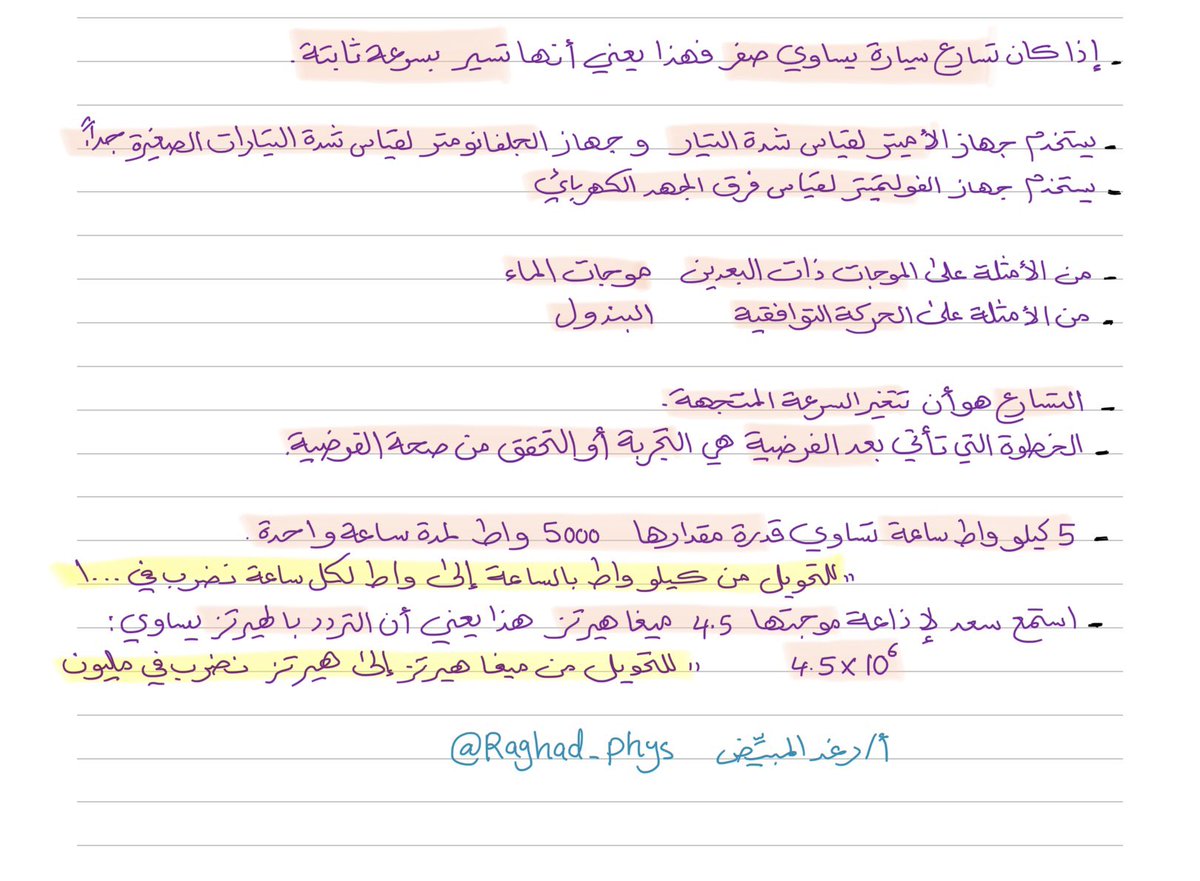 - إذا كان تسارع سيارة يساوي صفر فهذا يعني أنها تسير بسرعة ثابتة.
- يستخدم جهاز الأميتر لقياس شدة التيار و جهاز الجلفانومتر لقياس شدة التيارات الصغيرة جداً
- يستخدم جهاز الفولتميتر لقياس فرق الجهد الكهربائي
- من الأمثلة على الموجات ذات البعدين موجات الماء
- من الأمثلة على الحركة التوافقية البندول
- التسارع هو أن تتغير السرعة المتجهة.
- الخطوة التي تأتي بعد الفرضية هي التجربة أو التحقق من صحة الفرضية.
- 5 كيلو واط ساعة تساوي قدرة مقدارها 5000 واط لمدة ساعة واحدة.
"للتحويل من كيلو واط بالساعة إلى واط لكل ساعة نضرب في ١٠٠٠
- استمع سعد لإذاعة موجتها 4.5 ميغا هيرتز هذا يعني أن التردد بالهيرتز يساوي:
4.5 × 10⁶ "للتحويل من ميغا هيرتز إلى هيرتز نضرب في مليون
أ/رغد المبيِّض @Raghad_phys